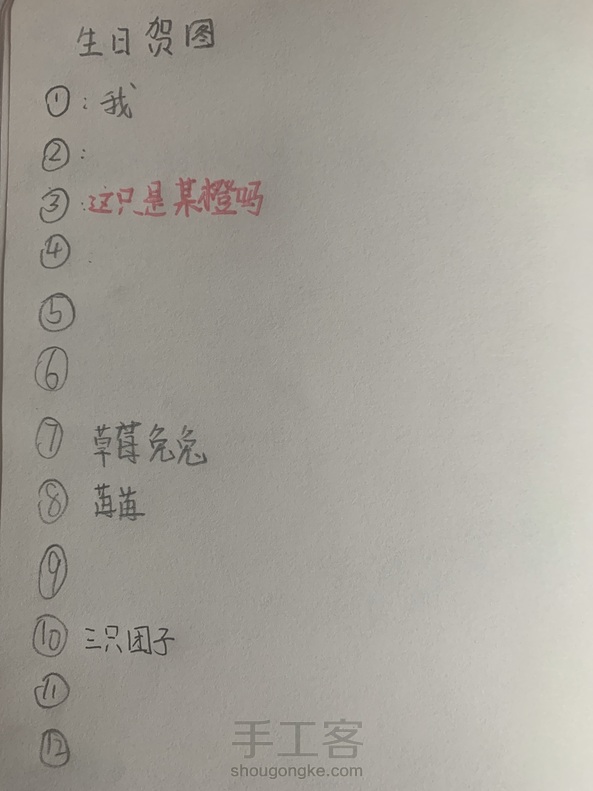 生日贺图
①:我
②:
③:这只是某橙吗
④
⑤
⑥
⑦ 草莓兔兔
⑧ 苒苒
⑨
⑩ 三只团子
⑪
⑫
手工客
shougongke.com